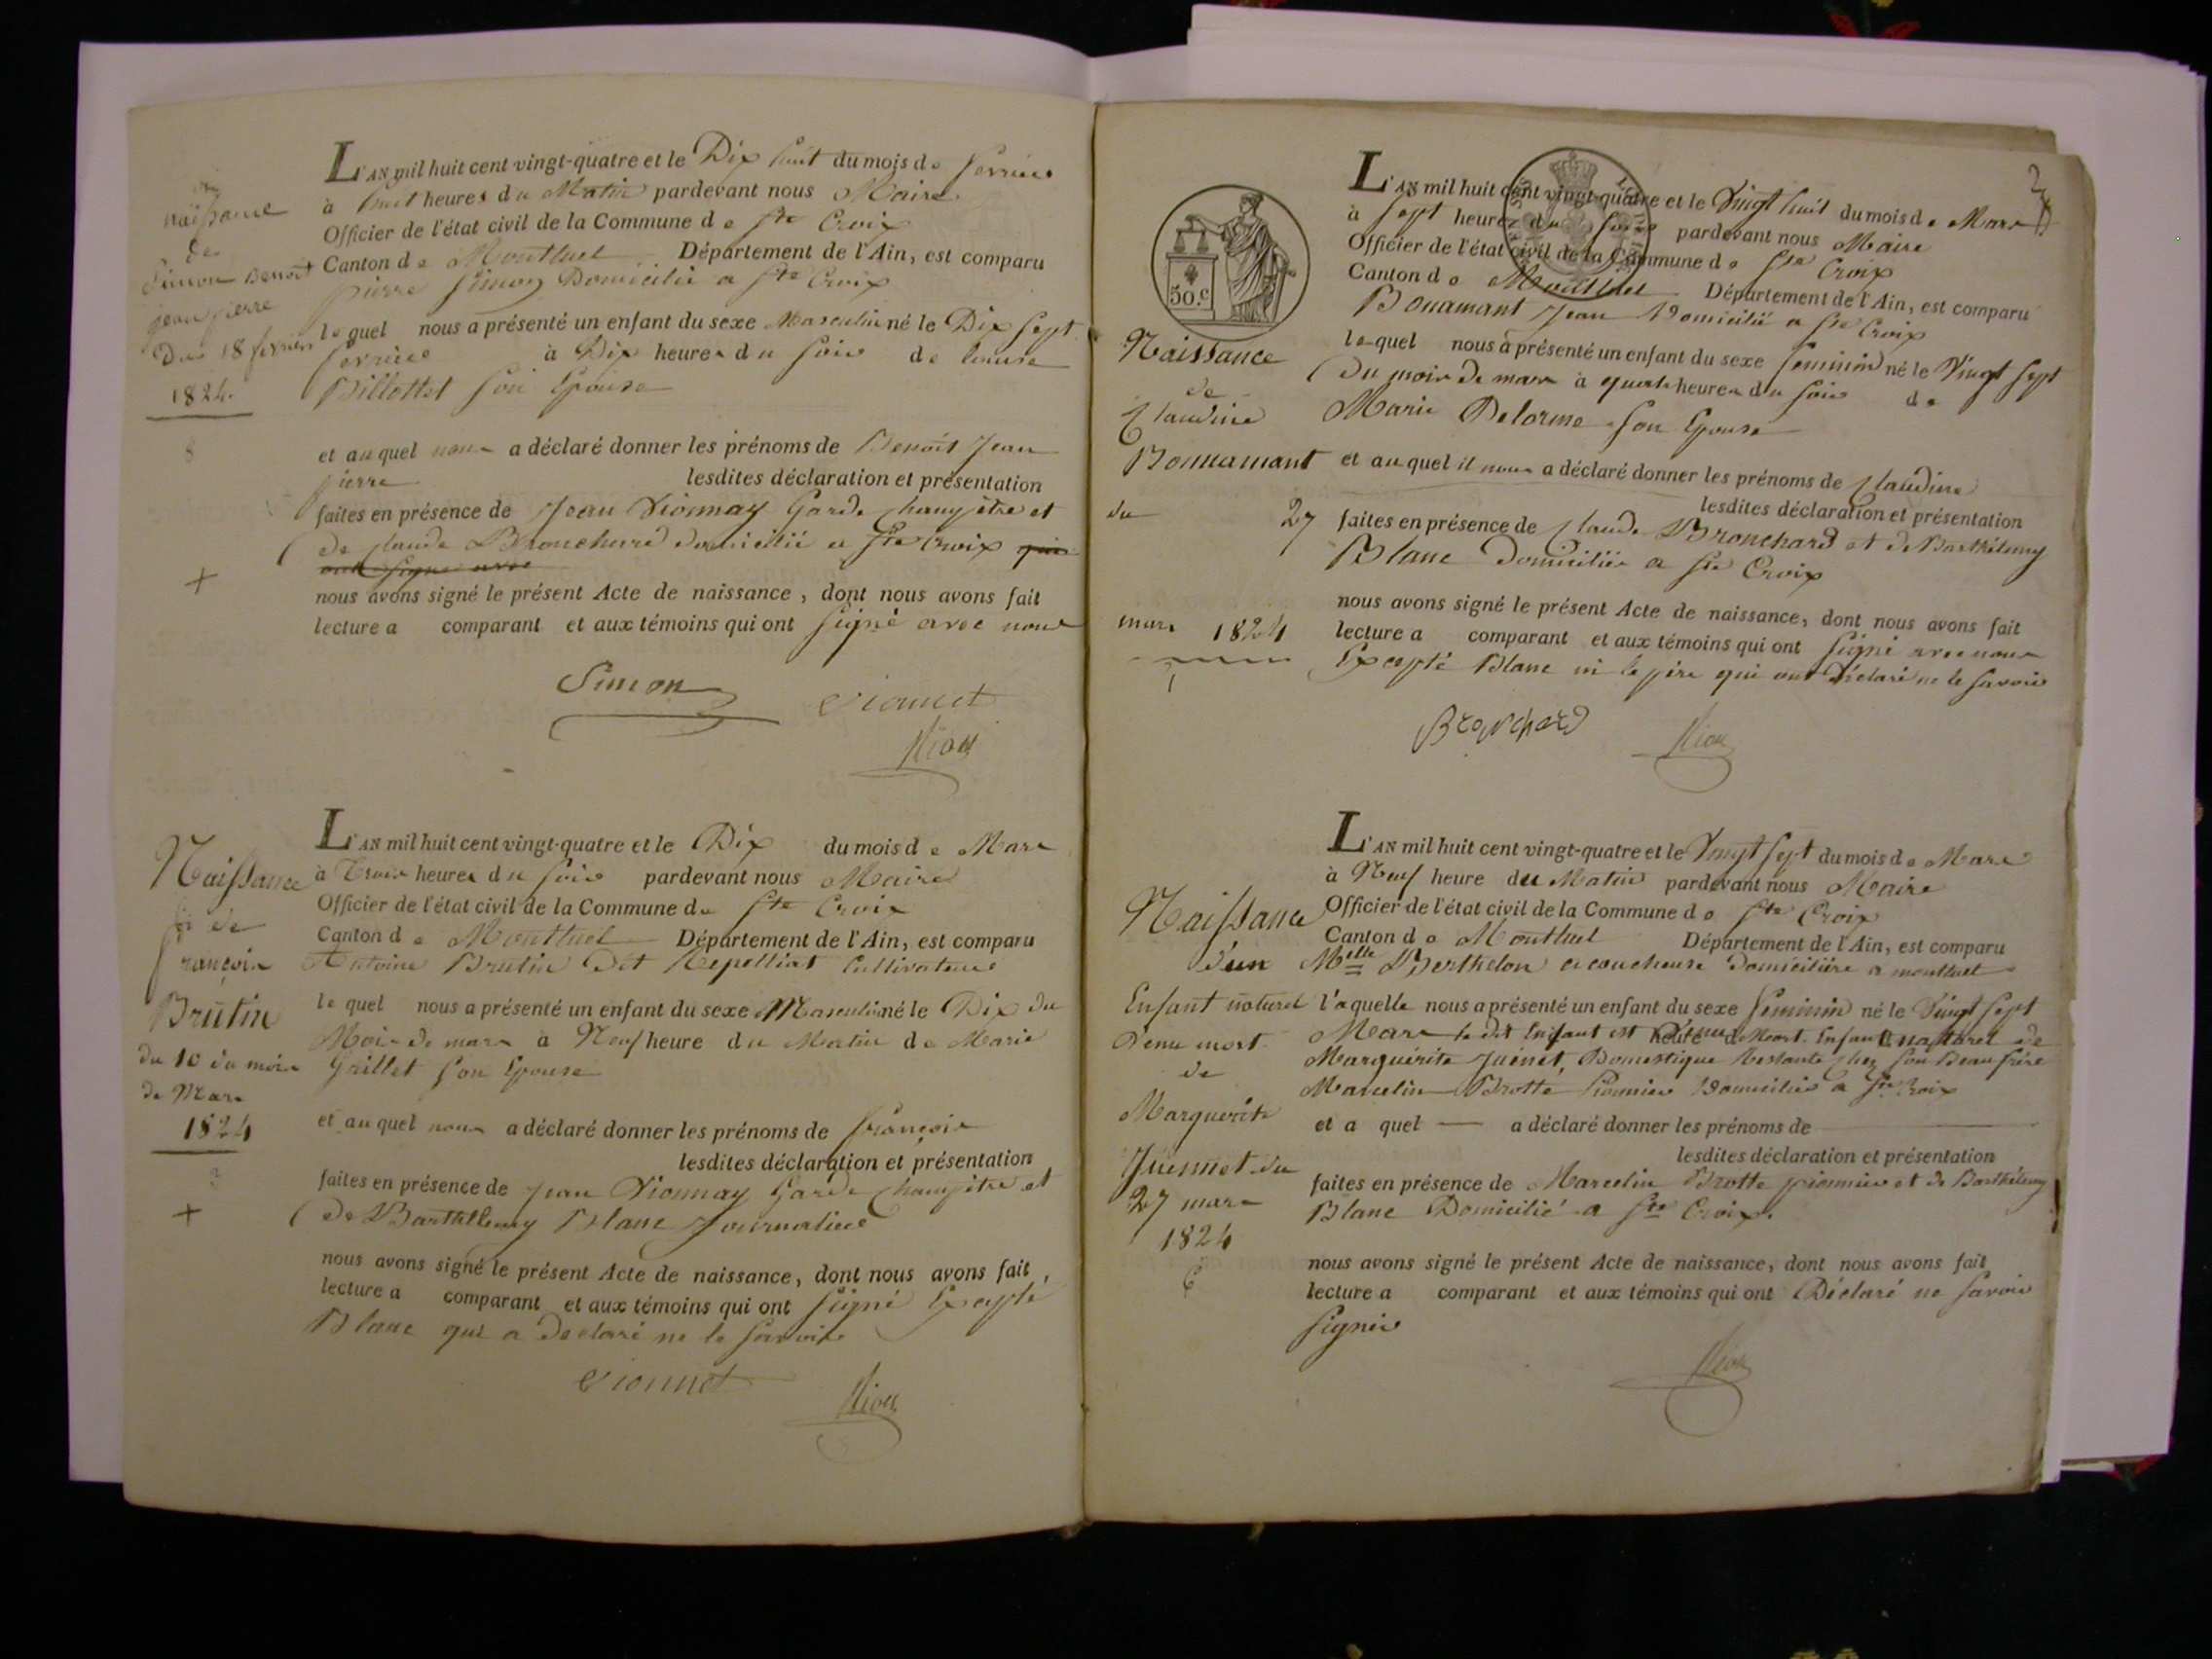 naissance
de
Simon Benoit
jean pierre
Du 18 fevrier
1824.
8
L'AN mil huit cent vingt-quatre et le Dix huit du mois de fevrier
à huit heures du Matin pardevant nous Maire
Officier de l'état civil de la Commune de Ste Croix
Canton de Montluel Département de l'Ain, est comparu
pierre Simon Domicilié a Ste Croix
lequel nous a présenté un enfant du sexe Masculin né le Dix Sept
fevrier à Dix heures du Soir de
Billottet Son Epouse
et auquel nous a déclaré donner les prénoms de Benoit Jean
pierre lesdites déclaration et présentation
faites en présence de Jean Vionnay Garde champêtre et
De Claude domicilié a Ste Croix
nous avons signé le présent Acte de naissance, dont nous avons fait
lecture a comparant et aux témoins qui ont Signé avec nous
Simon
Vionnet
Niou
Naissance
de
françois
Brutin
du 10 du mois
de Mars
1824
L'AN mil huit cent vingt-quatre et le Dix du mois de Mars
à Trois heures du Soir pardevant nous Maire
Officier de l'état civil de la Commune de Ste Croix
Canton de Montluel Département de l'Ain, est comparu
Antoine Brutin Dit Repelliat Cultivateur
lequel nous a présenté un enfant du sexe Masculin né le Dix du
Mois de mars à Neuf heure du Matin de Marie
Grillet Son Epouse
et auquel nous a déclaré donner les prénoms de françois
lesdites déclaration et présentation
faites en présence de Jean Vionnay Garde Champêtre et
De Barthélemy Blanc Journalier
nous avons signé le présent Acte de naissance, dont nous avons fait
lecture a comparant et aux témoins qui ont Signé Excepté
Blanc qui a Declaré ne le Savoir
Vionnet
Niou
2
50.c
Naissance
de
Claudine
Bonnamant
du 27
mars 1824
L'AN mil huit cent vingt-quatre et le Vingt huit du mois de Mars
à Sept heures du Soir pardevant nous Maire
Officier de l'état civil de la Commune de Ste Croix
Canton de Montluel Département de l'Ain, est comparu
Bonamant Jean Domicilié a Ste Croix
lequel nous a présenté un enfant du sexe feminin né le Vingt Sept
Du mois de mars à quatre heures du Soir de
Marie Delorme Son Epouse
et auquel il nous a déclaré donner les prénoms de Claudine
lesdites déclaration et présentation
faites en présence de Claude Bronchard et de Barthélemy
Blanc Domiciliés a Ste Croix
nous avons signé le présent Acte de naissance, dont nous avons fait
lecture a comparant et aux témoins qui ont Signé avec nous
Excepté Blanc ni le père qui ont déclaré ne le Savoir
Bronchard
Niou
Naissance
D'un
Enfant naturel
Venu mort
de
Marguerite
Juennet du
27 mars
1824
L'AN mil huit cent vingt-quatre et le Vingt Sept du mois de Mars
à Neuf heure du Matin pardevant nous Maire
Officier de l'état civil de la Commune de Ste Croix
Canton de Montluel Département de l'Ain, est comparu
Melle Berthelon accoucheuse domiciliée a montluel
l'aquelle nous a présenté un enfant du sexe feminin né le Vingt Sept
Mars le dit Enfant est Venu Mort. Enfant naturel de
Marguérite Juenet, Domestique Restante chez Son Beau frère
Marcelin Brotte Pionnier Domicilié a Ste Croix
et a quel a déclaré donner les prénoms de
lesdites déclaration et présentation
faites en présence de Marcelin Brotte pionnier et de Barthélemy
Blanc Domicilié a Ste Croix.
nous avons signé le présent Acte de naissance, dont nous avons fait
lecture a comparant et aux témoins qui ont Déclaré ne Savoir
Signer
Niou